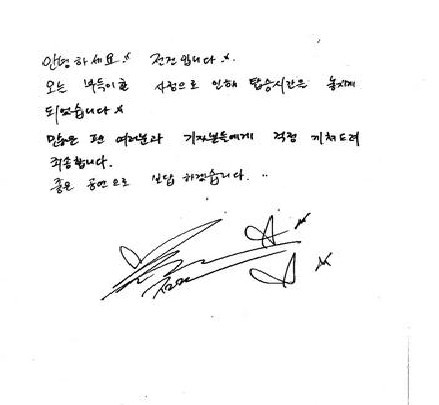 안녕하세요. 전진입니다.
오는 부득이한 사정으로 인해 탑승시간을 놓치게
되었습니다.
많은 팬 여러분과 기자분들에게 걱정 끼쳐드려
죄송합니다.
좋은 공연으로 보답 하겠습니다. ..